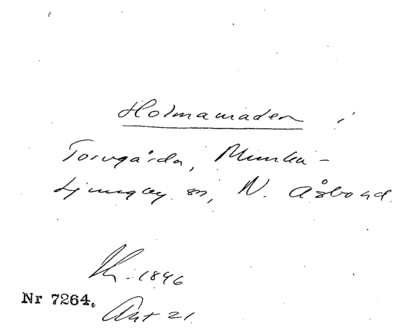 Holmamaden i
Torvgårda, Munka-
Ljungby sn, N. Åsbo hd.
1846
Nr 7264.
Akt 21